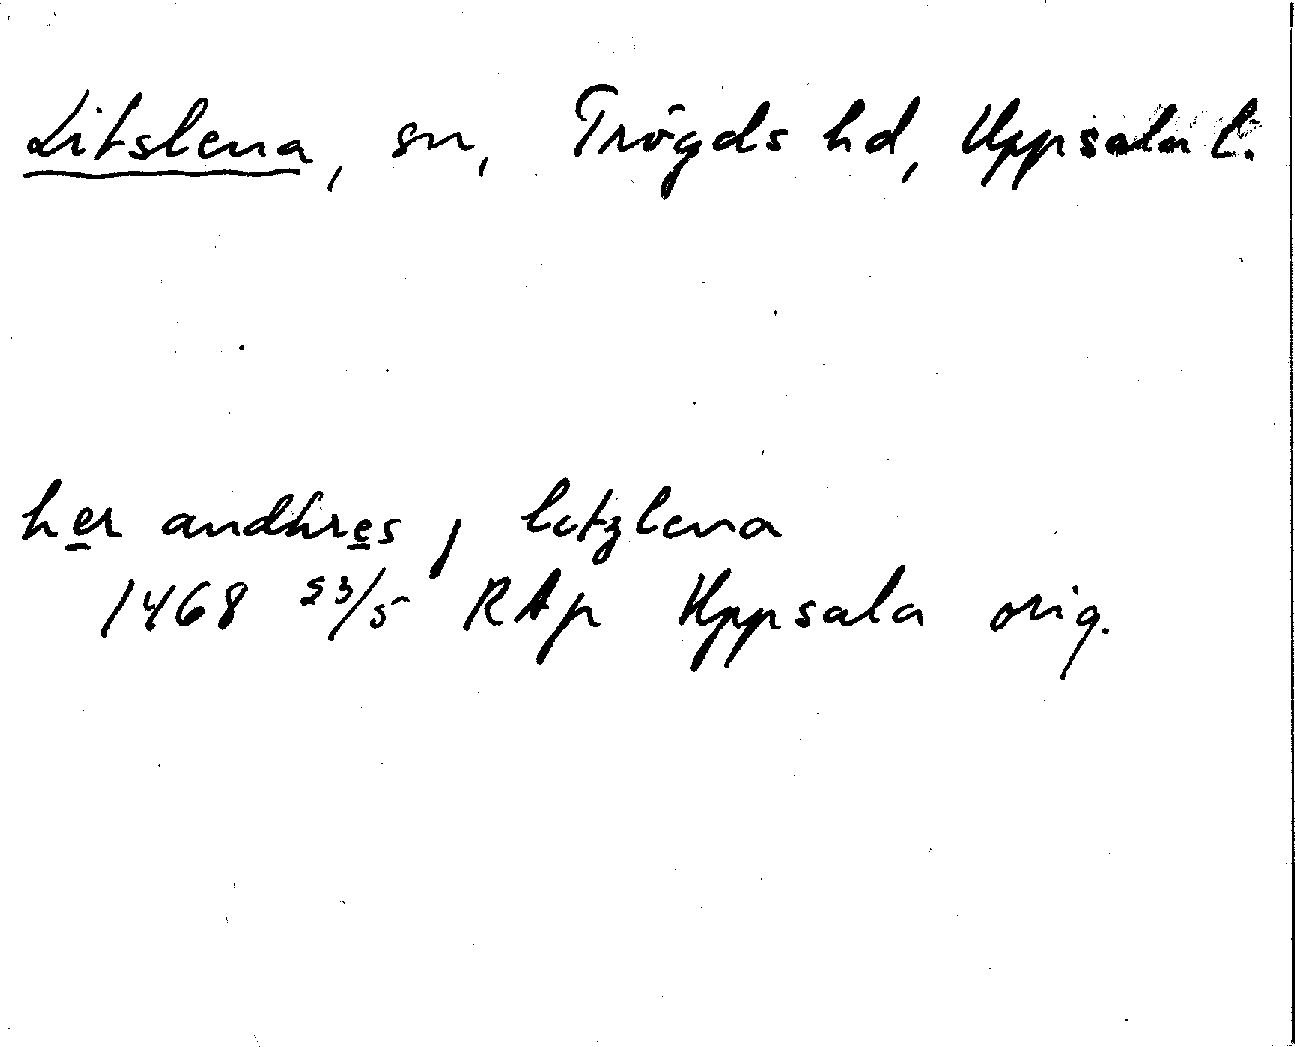 Litslena, sn, Trögds hd, Uppsala l.
her andhres j letzlena
1468 23/5 RAp Uppsala orig.